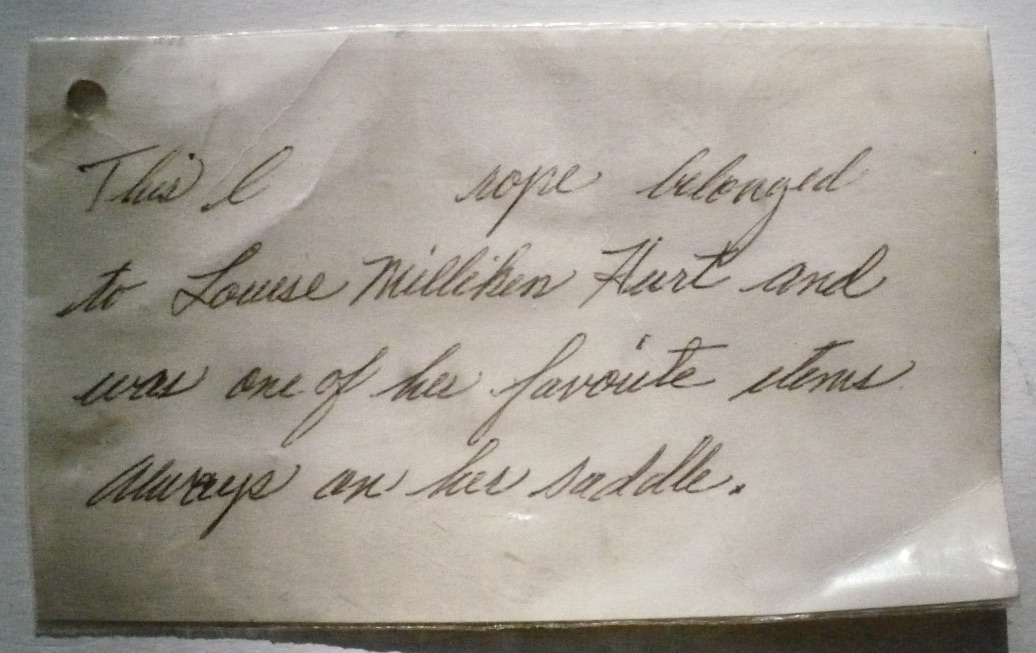 This l rope belonged
to Louise Milliken Hurt and
was one of her favorite items
always on her saddle.